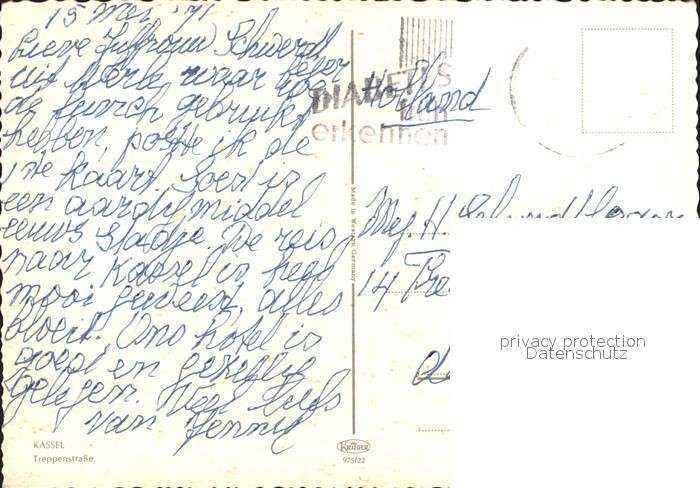 15 Mei '71
Lieve Juffrouw Schwerdt
uit Werle waar
de lunch gebruikt
hebben, postte ik de
1ste kaart. Soest is
een aardig middel
eeuws stadje. De reis
naar Kassel is heel
mooi geweest, alles
bloeit. Ons hotel is
goed en gezellig
gelegen. Veel liefs
van Jenny
KASSEL
Treppenstraße
Made in Western Germany
KRÜGER
975/22
DIABETES
früh
erkennen
Holland
Mej. H.
14
privacy protection
Datenschutz